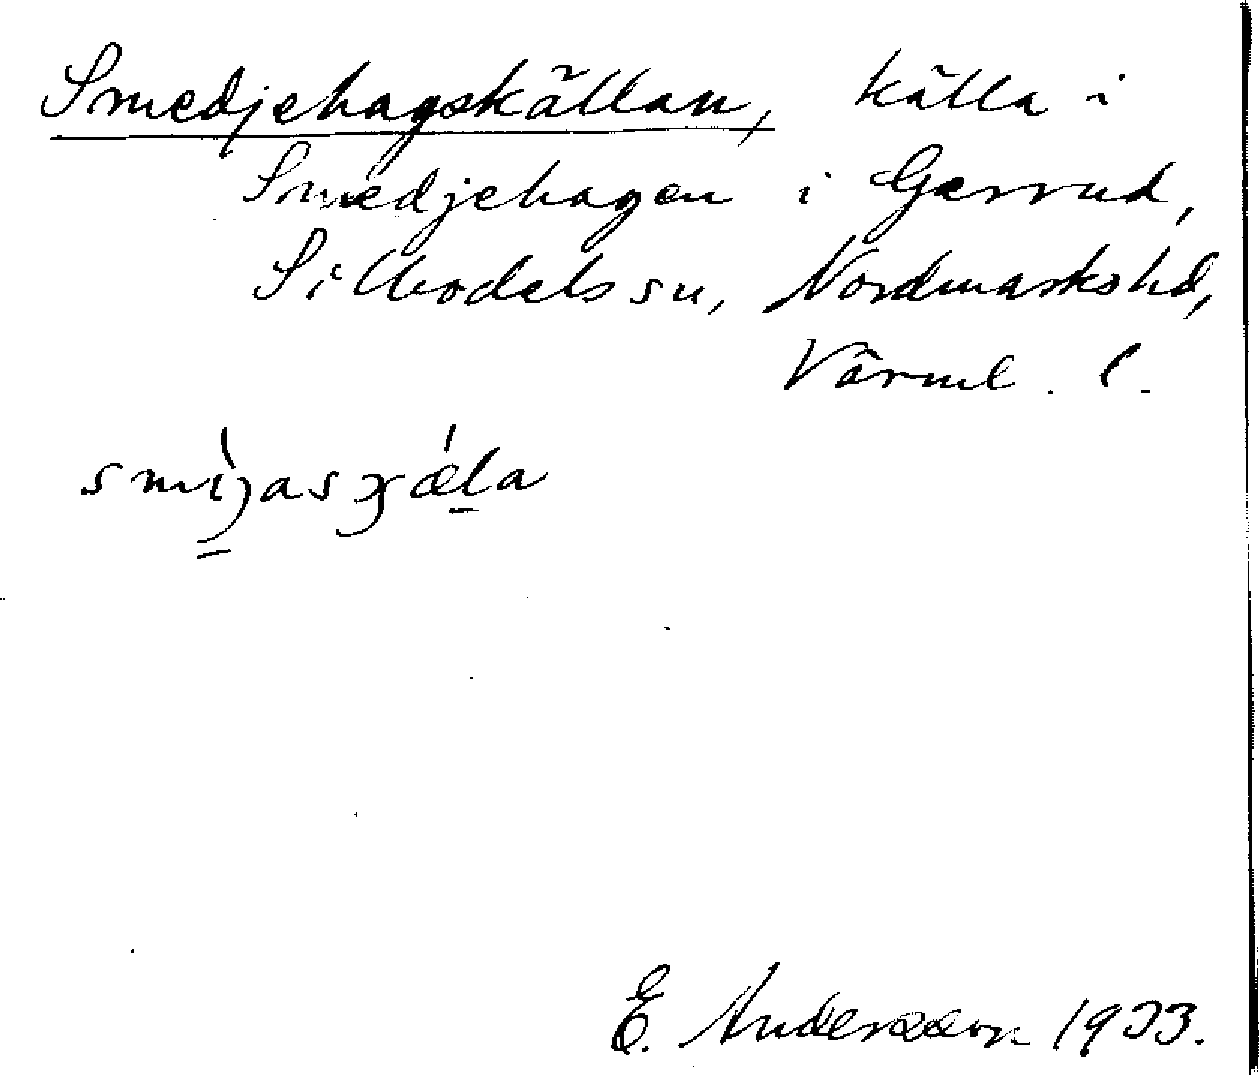 Smedjehagskällan, källa i
Smedjehagen i Gærrud,
Sillbodals sn, Nordmarks hd,
Värml. l.
E. Andersson 1933.